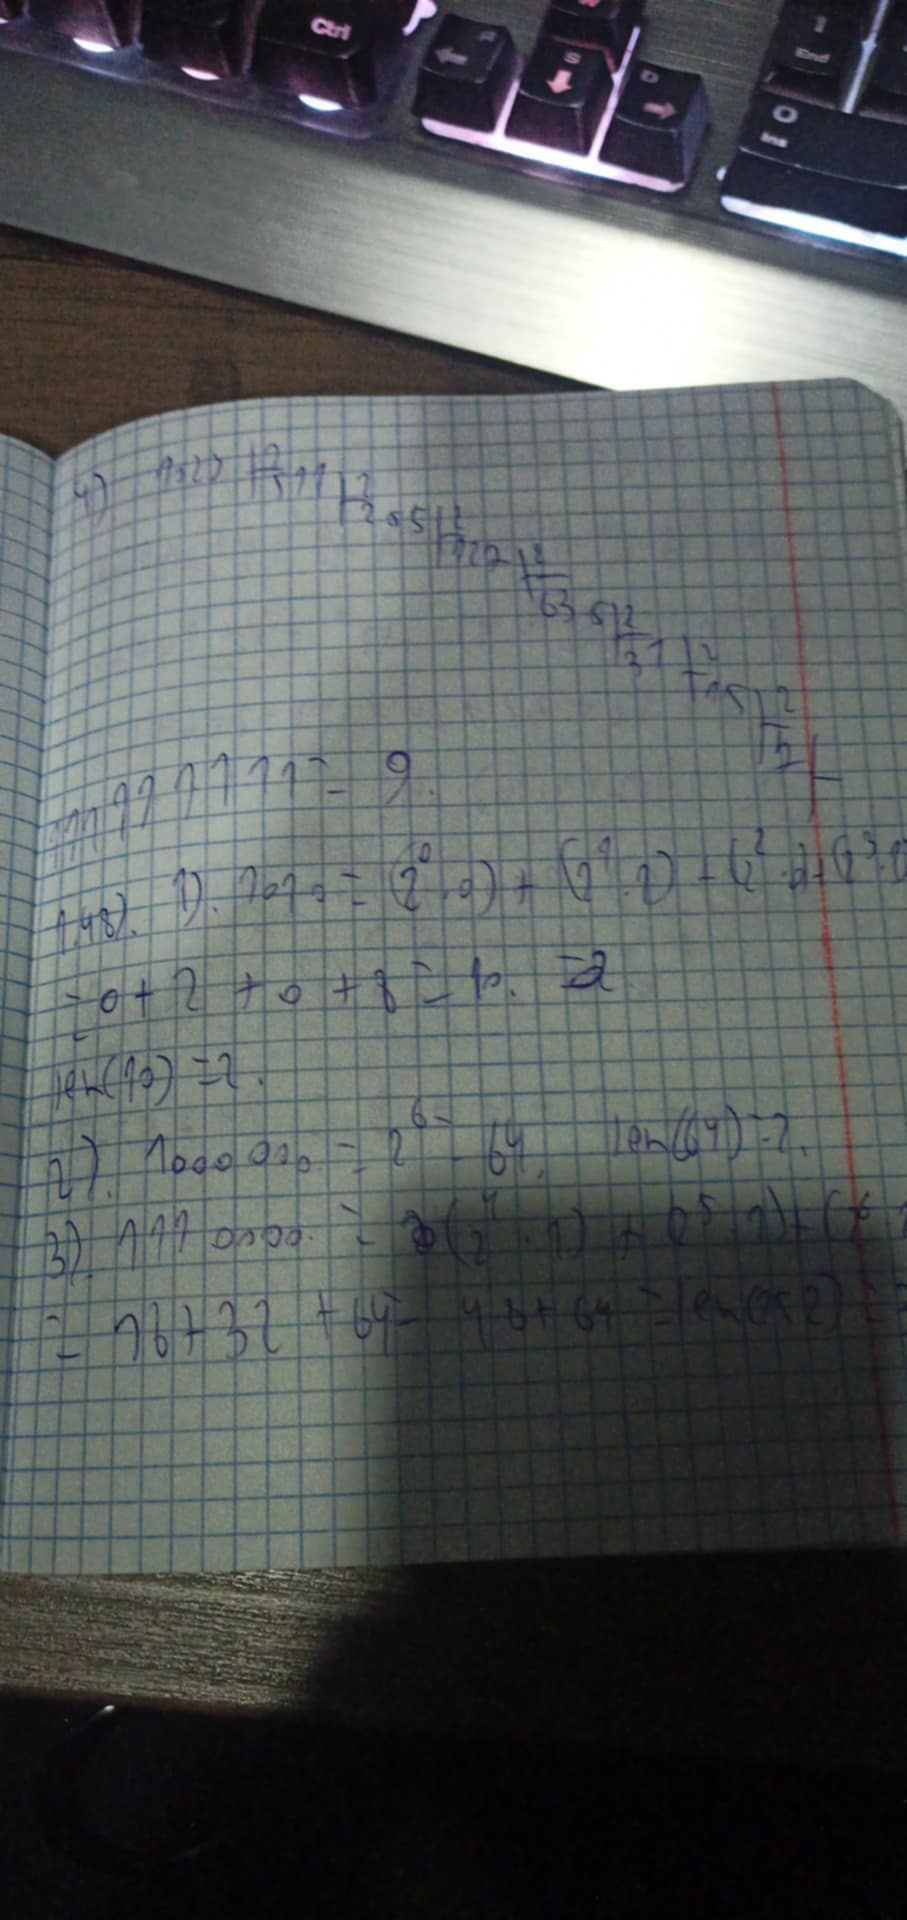 Ctrl
S
D
End
O
Ins
4) 1023 |2
511 |2
255 |2
127 |2
63 |2
31 |2
15 |2
= 9.
1.48). 1). 1010 = (2^0 · 0) + (2^1 · 1) + (2^2 · 0) + (2^3 · 1)
= 0 + 2 + 0 + 8 = 10. = 2
len(10) = 2.
2). 1000000 = 2^6 = 64. len(64) = 2.
3). 1110000. = (2^4 · 1) + (2^5 · 1) + (2^6 · 1
= 16 + 32 + 64 = 48 + 64 = len(112) = 3